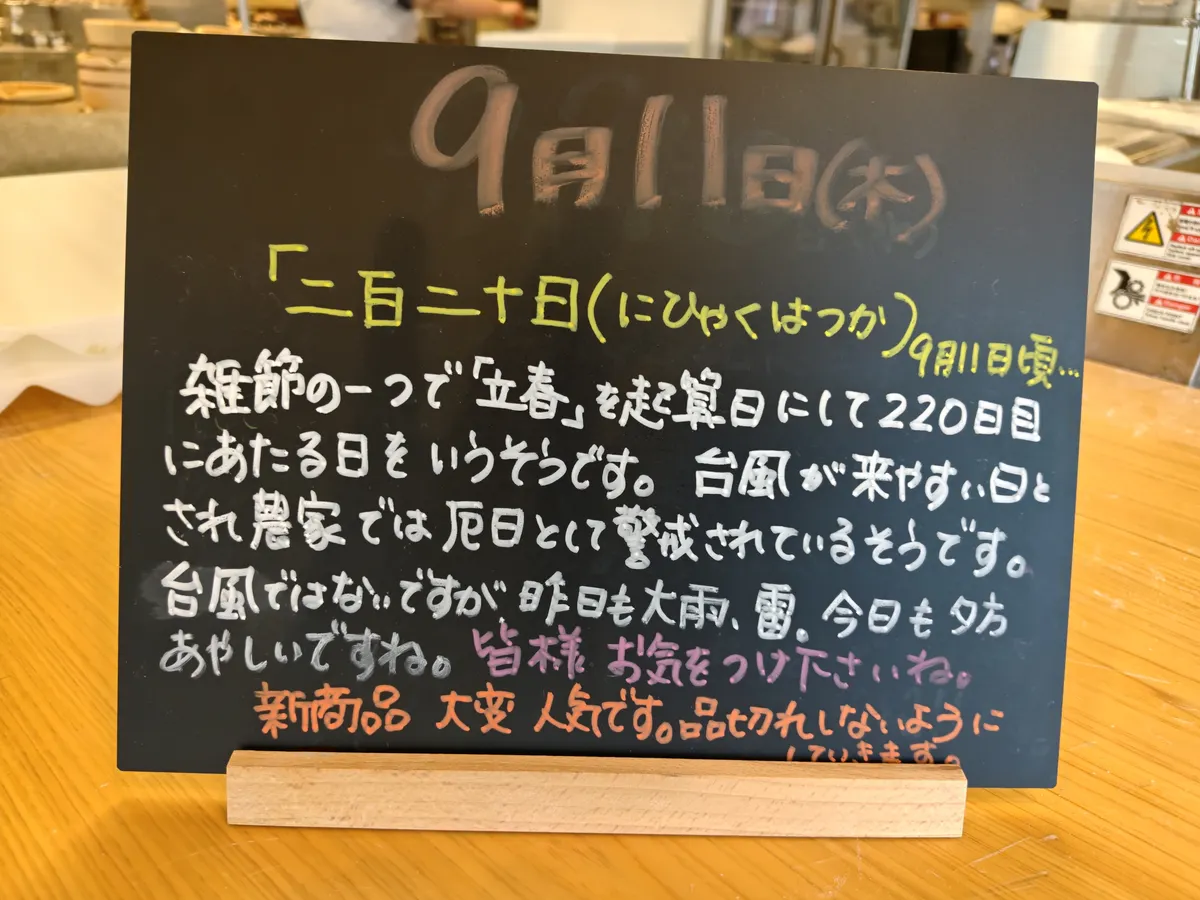 9月11日(木)
「二百二十日(にひゃくはつか)9月11日頃…
雑節の一つで「立春」を起算日にして220日目
にあたる日をいうそうです。台風が来やすい日と
され農家では厄日として警戒されているそうです。
台風ではないですが昨日も大雨、雷。今日も夕方
あやしいですね。皆様お気をつけ下さいね。
新商品 大変 人気です。品切れしないように
していきます。